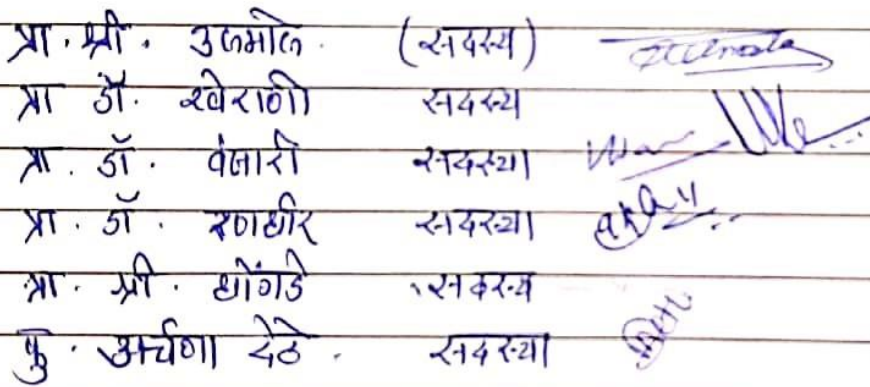 प्रा. श्री. उलमाले. (सदस्य)
प्रा डॉ. खेराणी सदस्य
प्रा. डॉ. वंजारी सदस्या
प्रा. डॉ. रणधीर सदस्या
प्रा. श्री. धोंगडे सदस्य
कु. अर्चना देठे. सदस्या